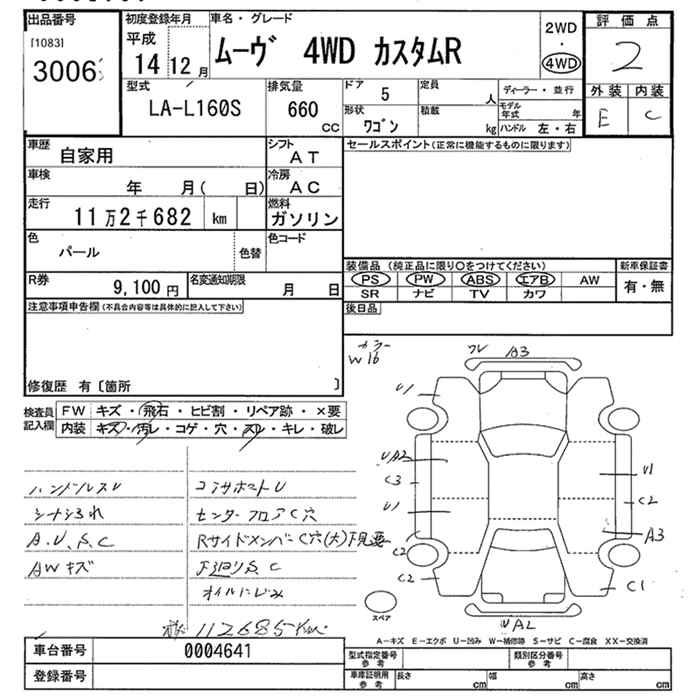 出品番号
[1083]
3006
初度登録年月
平成
14 12 月
車名・グレード
ムーヴ 4WD カスタムR
2WD
・
4WD
評価点
2
外装 内装
E C
型式
LA-L160S
排気量
660
cc
ドア 5
定員 人
形状 ワゴン
積載 kg
ディーラー・並行
モデル年式 年
ハンドル 左・右
車歴 自家用
シフト AT
車検 年 月( 日)
冷房 AC
走行 11万2千682 km
燃料 ガソリン
色 パール
色替
色コード
R券 9,100 円
名変通知期限 月 日
注意事項申告欄(不具合内容等は具体的に記入して下さい)
修復歴 有〔箇所 〕
セールスポイント(正常に機能するものに限ります)
装備品 (純正品に限り○をつけてください)
新車保証書
PS PW ABS エアB AW
SR ナビ TV カワ
有・無
後日品
検査員記入欄
FW キズ・飛石・ヒビ割・リペア跡・×要
内装 キズ・汚レ・コゲ・穴・スレ・キレ・破レ
ハンドルスレ
A.U、S、C
AWキズ
コアサポートU
センターフロアC穴
RサイドメンバーC穴(大)下見要
下廻りS、C
オイルにじみ
112685Km
カラー
W16
A3
U1
UA2
C3
U1
C2
C2
U1
C2
A3
C1
UA2
スペア
A-キズ E-エクボ U-凹み W-補修跡 S-サビ C-腐食 XX-交換済
車台番号 0004641
登録番号
型式指定番号 参考
類別区分番号 参考
車庫証明用 参考
長さ cm
幅 cm
高さ cm